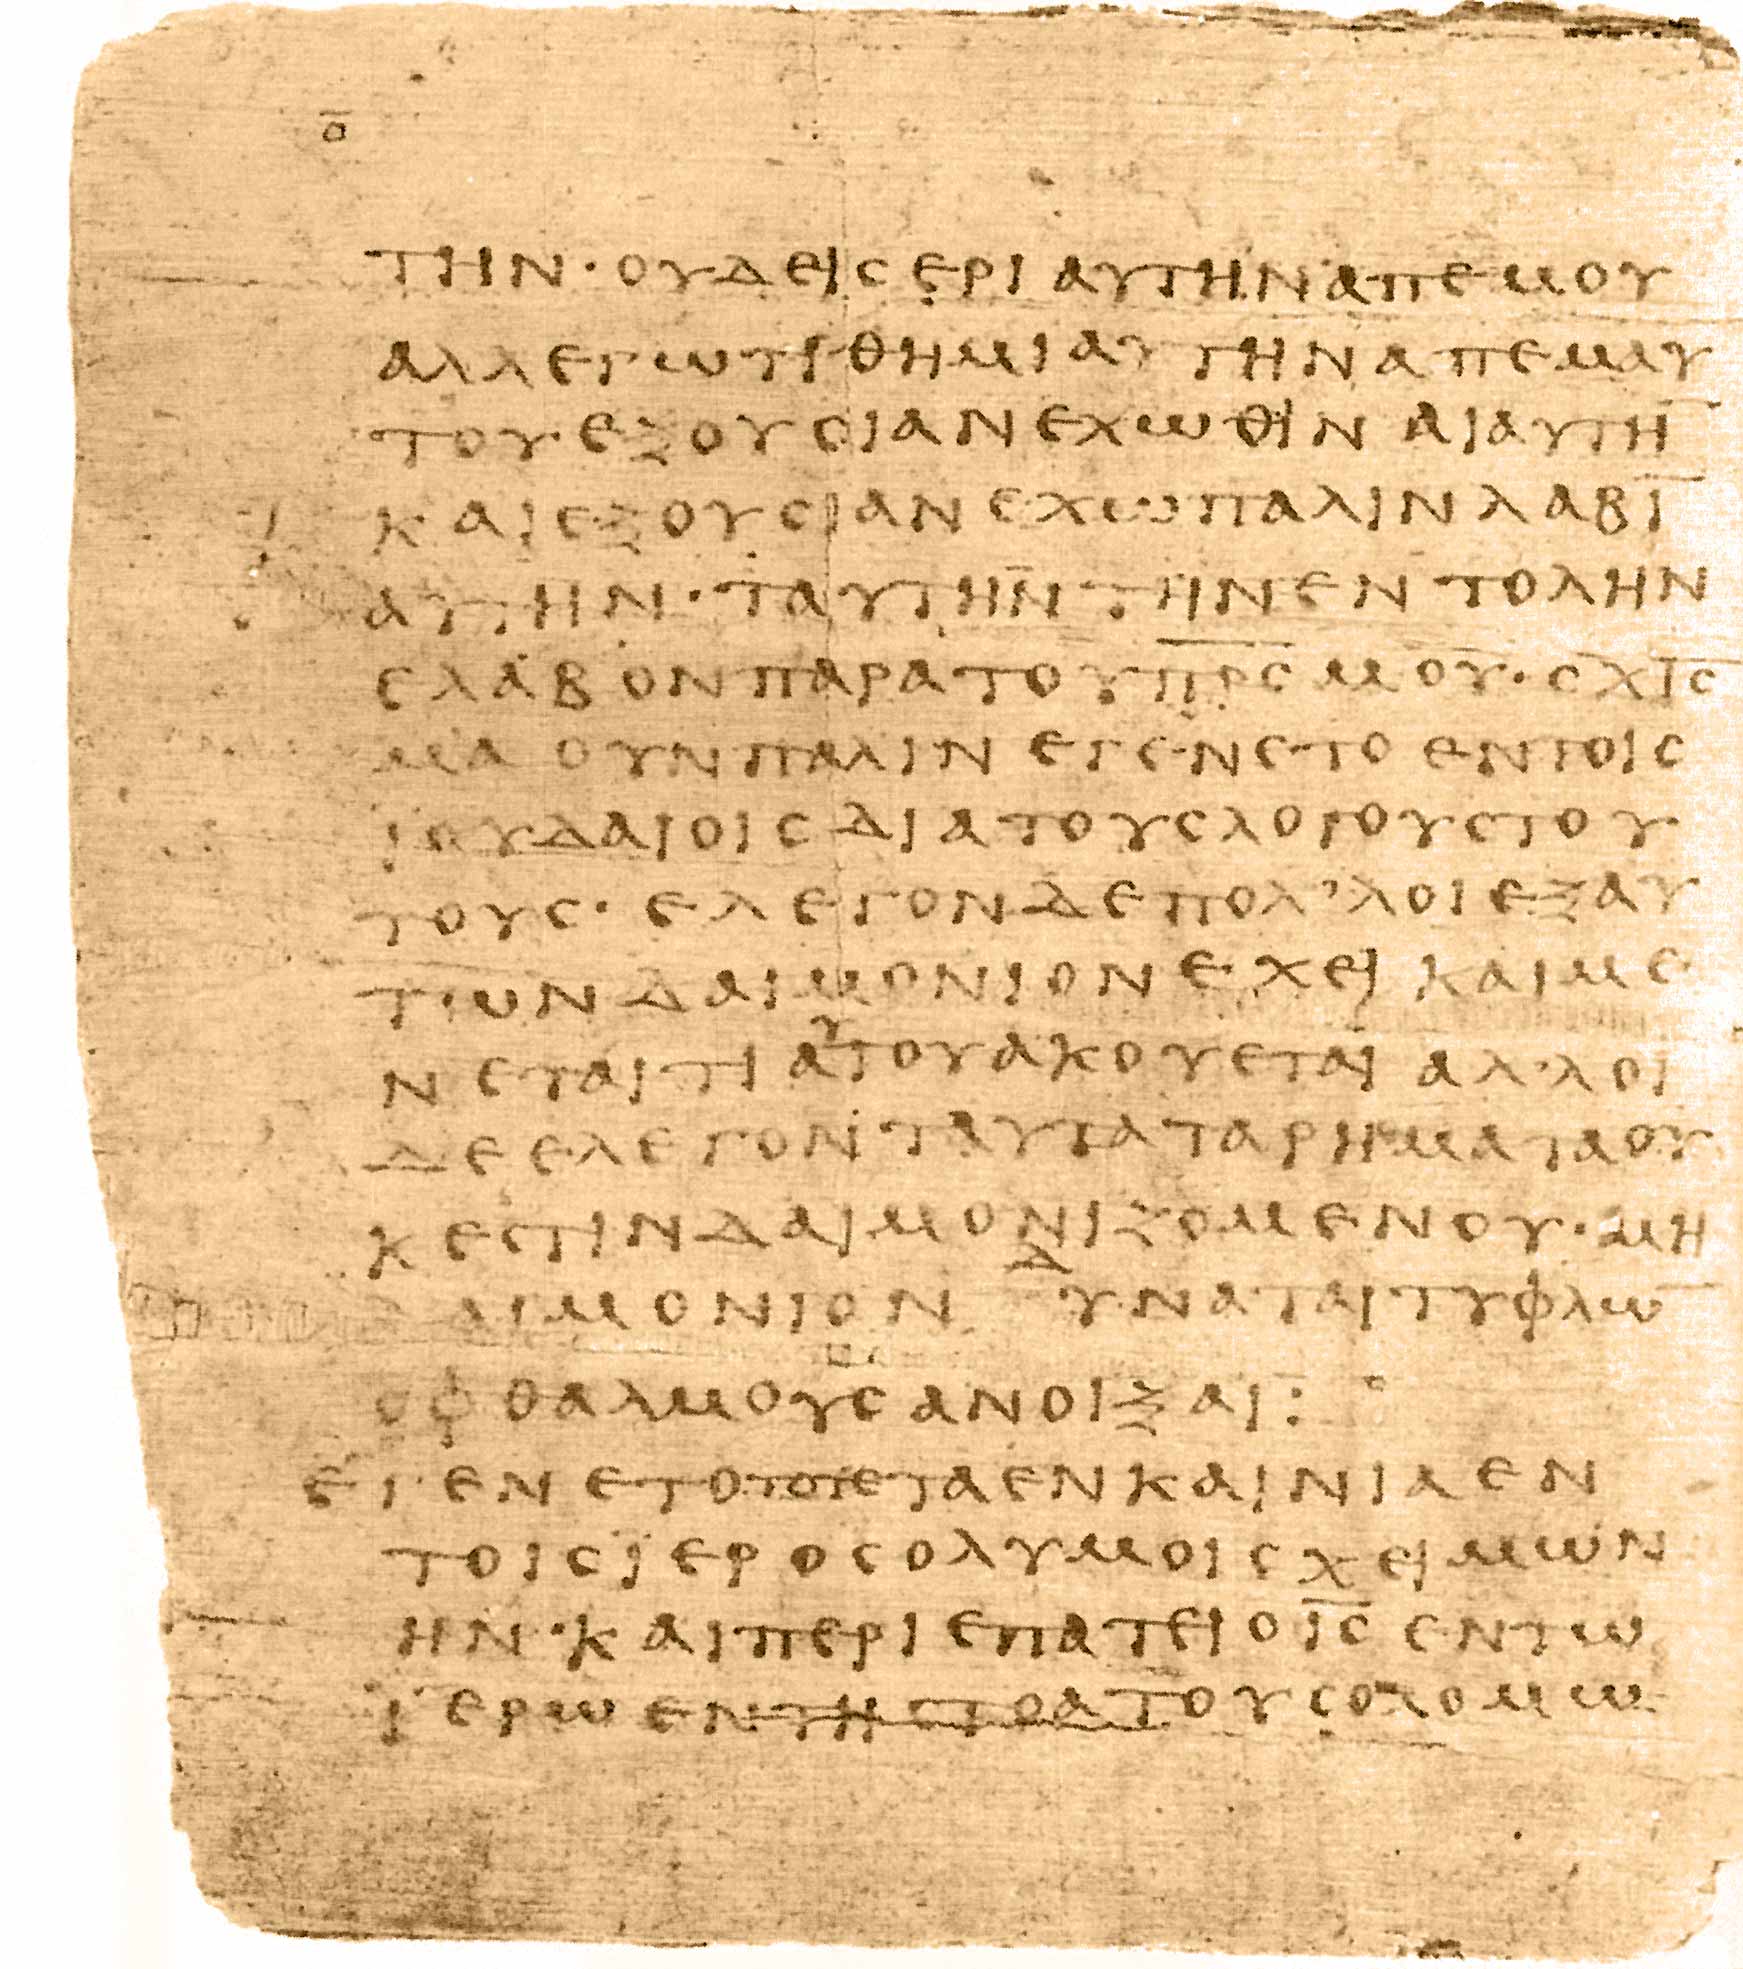 ο̅
ΤΗΝ·ΟΥΔΕΙСΕΡΙΑΥΤΗΝΑΠΕΜΟΥ
ΑΛΛΕΓΩΤΙΘΗΜΙΑΥΤΗΝΑΠΕΜΑΥ
ΤΟΥ·ΕΞΟΥСΙΑΝΕΧΩΘΙΝΑΙΑΥΤΗ̅
ΚΑΙΕΞΟΥСΙΑΝΕΧΩΠΑΛΙΝΛΑΒΙ̅
ΑΥΤΗΝ·ΤΑΥΤΗΝΤΗΝΕΝΤΟΛΗΝ
ΕΛΑΒΟΝΠΑΡΑΤΟΥΠ̅Ρ̅С̅ΜΟΥ·СΧΙС
ΜΑΟΥΝΠΑΛΙΝΕΓΕΝΕΤΟΕΝΤΟΙС
ΙΟΥΔΑΙΟΙСΔΙΑΤΟΥСΛΟΓΟΥСΤΟΥ
ΤΟΥС·ΕΛΕΓΟΝΔΕΠΟΛ’ΛΟΙΕΞΑΥ
ΤΩΝΔΑΙΜΟΝΙΟΝΕΧΕΙΚΑΙΜΕ
ΝΕΤΑΙΤΙΑΥΤΟΥΑΚΟΥΕΤΑΙΑΛ’ΛΟΙ
ΔΕΕΛΕΓΟΝΤΑΥΤΑΤΑΡΗΜΑΤΑΟΥ
ΚΕСΤΙΝΔΑΙΜΟΝΙΖΟΜΕΝΟΥ·ΜΗ
ΑΙΜΟΝΙΟΝΔΥΝΑΤΑΙΤΥΦΛΩ̅
ΟΦΘΑΛΜΟΥСΑΝΟΙΞΑΙ:
ΕΓΕΝΕΤΟΤΟΤΕΤΑΕΝΚΑΙΝΙΑΕΝ
ΤΟΙСΪΕΡΟСΟΛΥΜΟΙСΧΕΙΜΩΝ
ΗΝ·ΚΑΙΠΕΡΙΕΠΑΤΕΙΟΙ̅С̅ΕΝΤΩ
ΪΕΡΩΕΝΤΗСΤΟΑΤΟΥСΟΛΟΜΩ